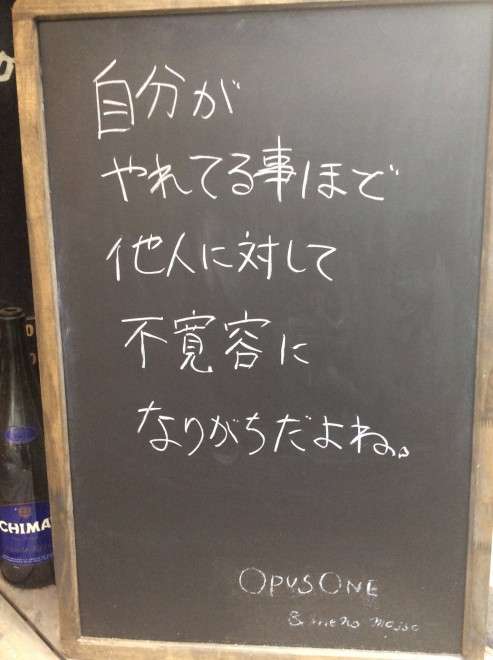 自分が
やれてる事ほど
他人に対して
不寛容に
なりがちだよね。
OPUS ONE
CHIMA